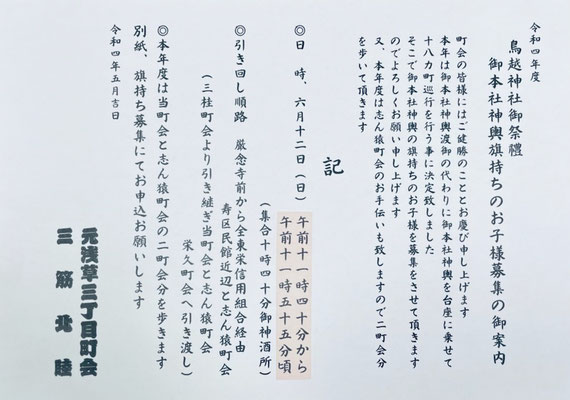 令和四年度
鳥越神社御祭禮
御本社神輿旗持ちのお子様募集の御案内
町会の皆様にはご健勝のこととお慶び申し上げます
本年は御本社神輿渡御の代わりに御本社神輿を台座に乗せて
十八カ町巡行を行う事に決定致しました
そこで御本社神輿の旗持ちのお子様を募集をさせて頂きます
のでよろしくお願い申し上げます
又、本年度は志ん猿町会のお手伝いも致しますので二町会分
を歩いて頂きます
記
◎日　時、六月十二日（日）午前十一時四十分から
午前十一時五十五分頃
（集合十時四十分御神酒所）
◎引き回し順路　厳念寺前から全東栄信用組合経由
寿区民館近辺と志ん猿町会
（三桂町会より引き継ぎ当町会と志ん猿町会
栄久町会へ引き渡し）
◎本年度は当町会と志ん猿町会の二町会分を歩きます
別紙、旗持ち募集にてお申込お願いします
令和四年五月吉日
元浅草三丁目町会
三筋北睦